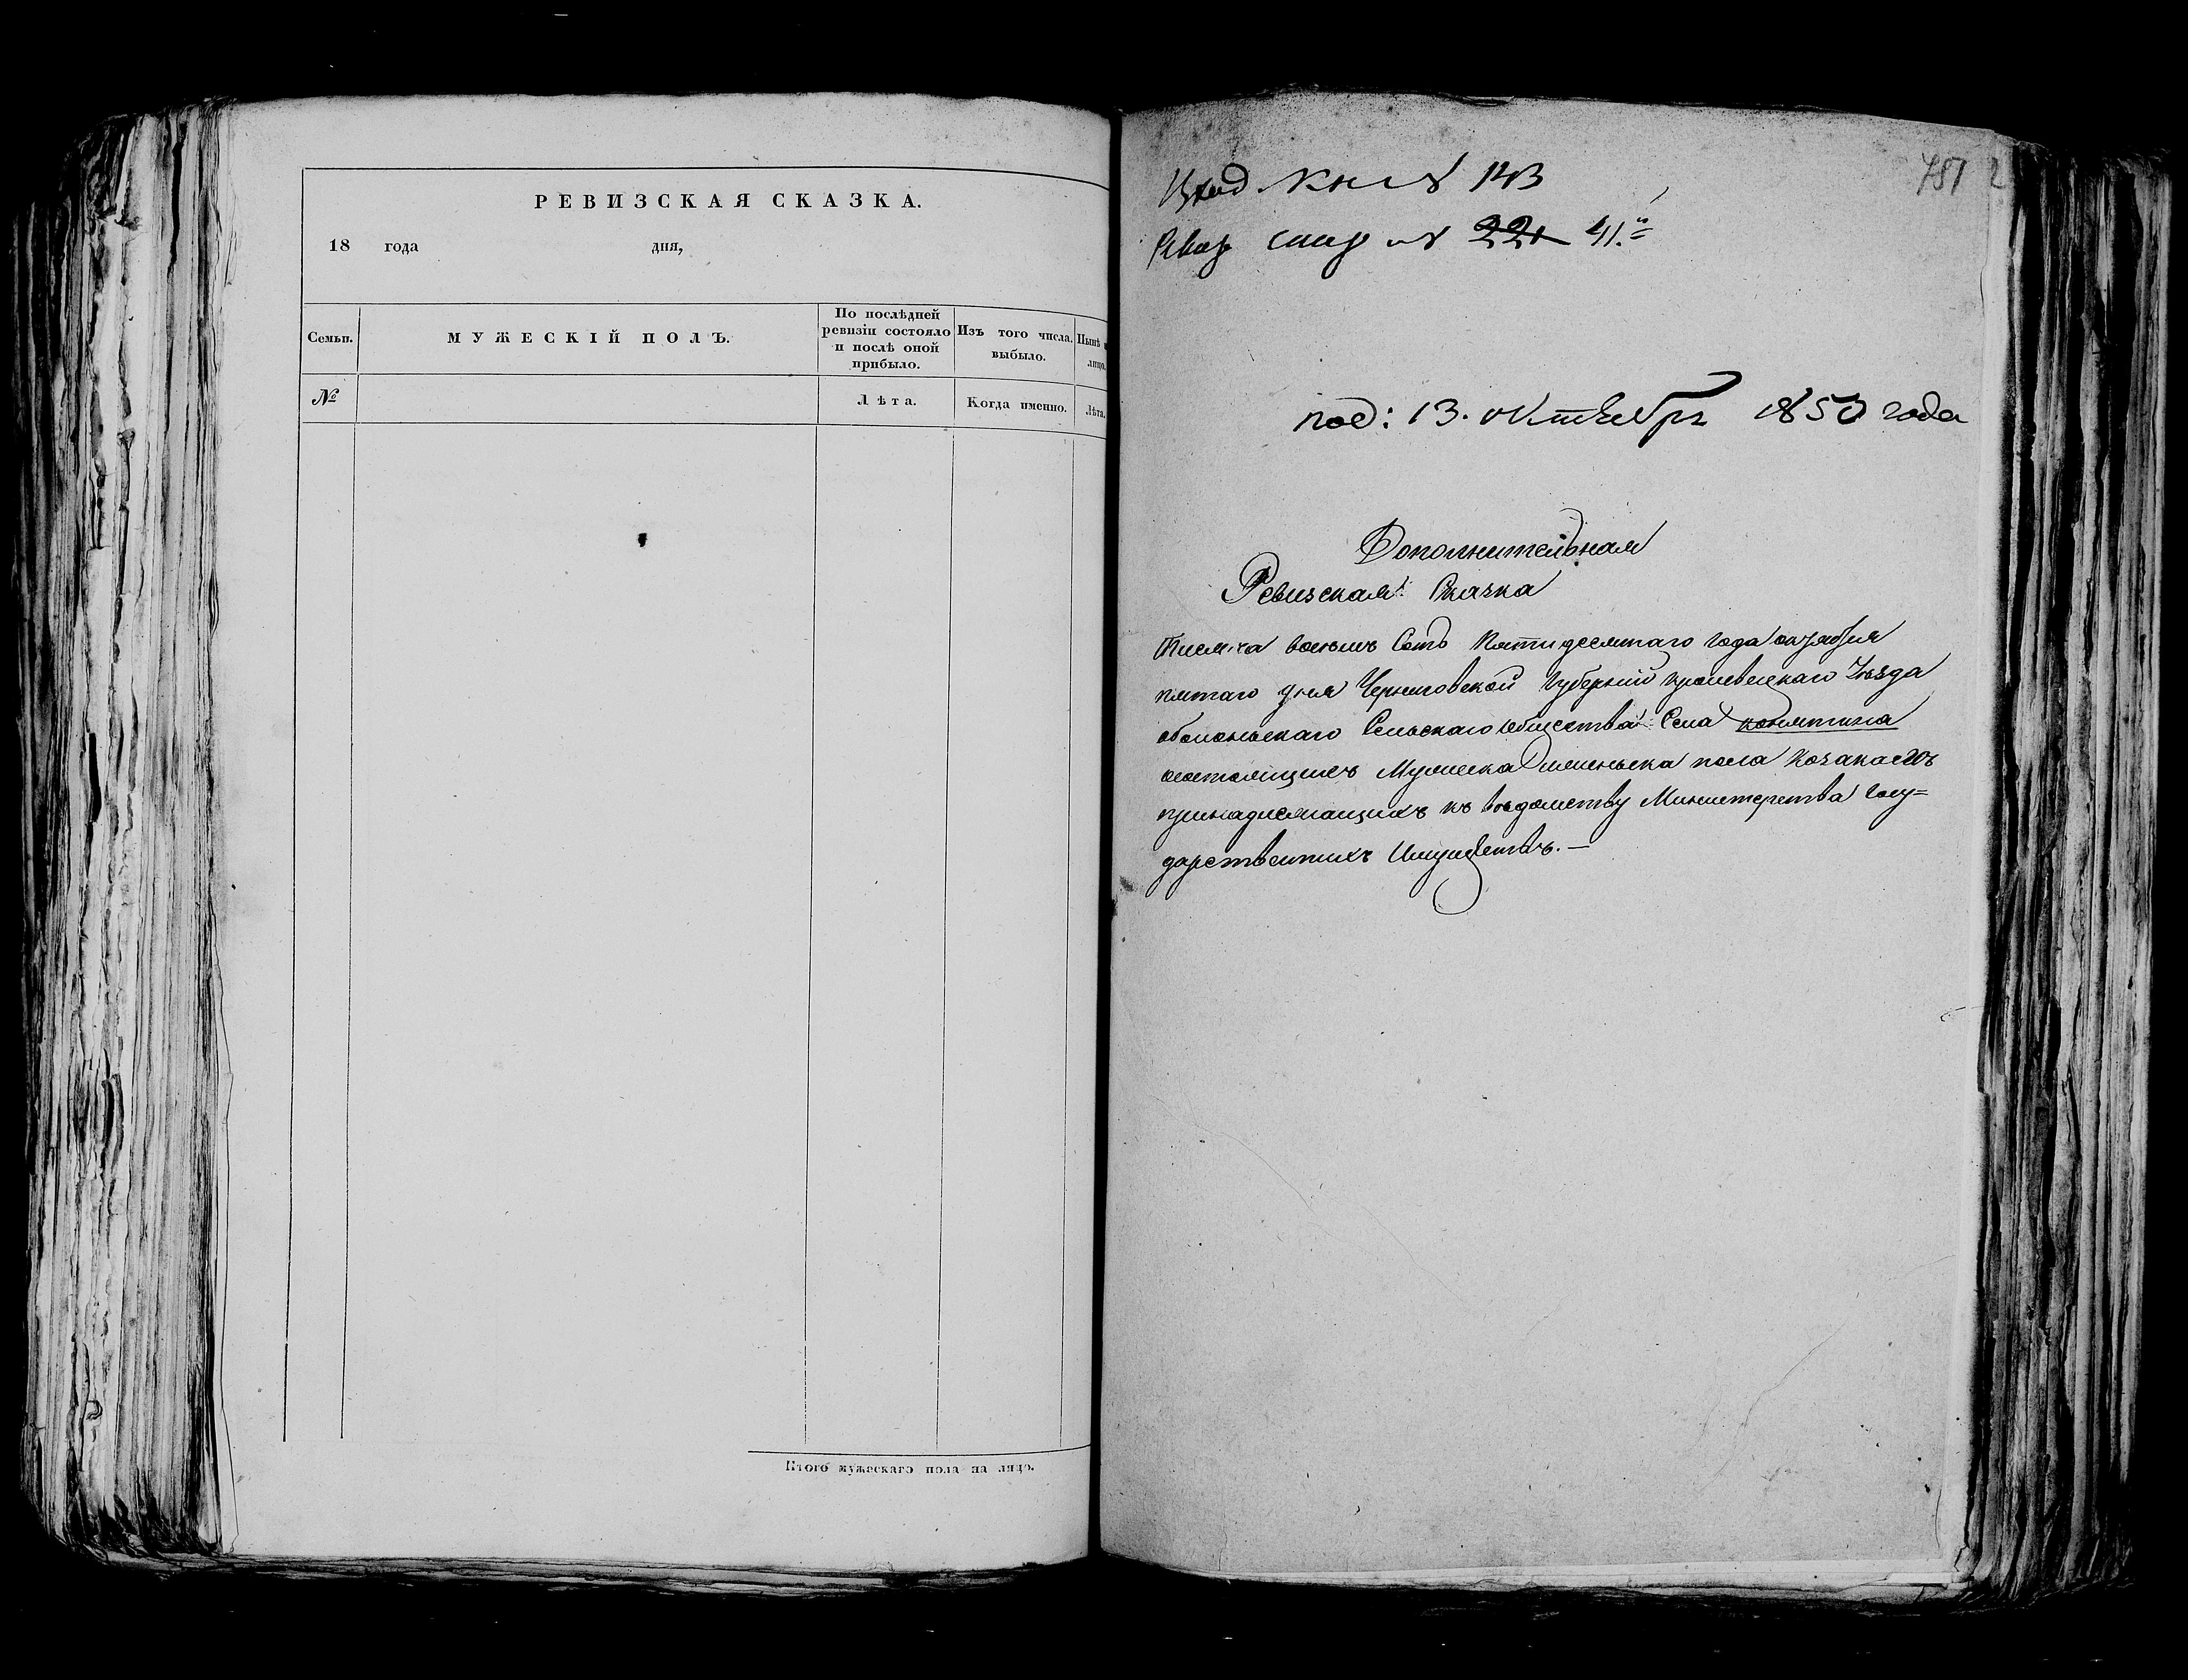 РЕВИЗСКАЯ СКАЗКА.
18 года дня,
Семьи.
МУЖЕСКІЙ ПОЛЪ.
По послѣдней
ревизіи состояло
и послѣ оной
прибыло.
Изъ того числа.
выбыло.
Нынѣ
лицо.
№
Лѣта.
Когда именно.
Лѣта.
Итого мужескаго пола на лицо.
781
Вход Кн № 143
Ревиз Сказ № 221 41.
под: 13. Октября 1850 года
Дополнительная
Ревизская Сказка
Тисяча восемь Сотъ Пятидесятаго года октября
пятаго дня Черниговской Губерніи Кролевецкаго Уѣзда
оболонскаго Сельскаго общества Села конятина
состоящихъ Мужеска и женьска пола Козакахъ
принадлежащихъ къ вѣдомству Министерства Госу=
дарственихъ Имуществъ.—